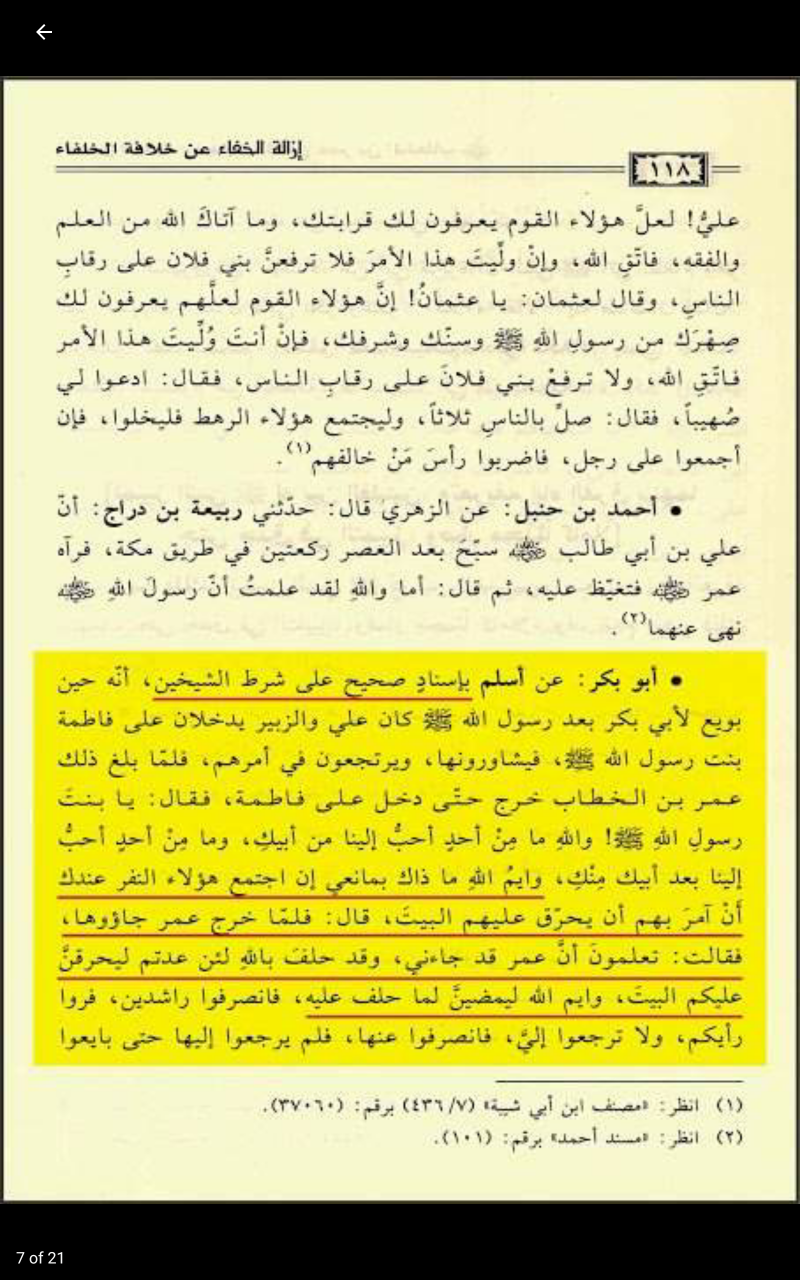 إزالة الخفاء عن خلافة الخلفاء
١١٨
عليُّ! لعلَّ هؤلاء القوم يعرفون لك قرابتك، وما آتاكَ الله من العلم
والفقه، فاتَّقِ الله، وإنْ ولِّيتَ هذا الأمرَ فلا ترفعنَّ بني فلان على رقابِ
الناسِ، وقال لعثمان: يا عثمانُ! إنَّ هؤلاء القوم لعلَّهم يعرفون لك
صِهْرَك من رسولِ اللهِ ﷺ وسنّك وشرفك، فإنْ أنتَ وُلِّيتَ هذا الأمر
فاتّقِ الله، ولا ترفعْ بني فلانَ على رقابِ الناس، فقال: ادعوا لي
صُهيباً، فقال: صلِّ بالناسِ ثلاثاً، وليجتمع هؤلاء الرهط فليخلوا، فإن
أجمعوا على رجل، فاضربوا رأسَ مَنْ خالفهم(١).
• أحمد بن حنبل: عن الزهري قال: حدّثني ربيعة بن دراج: أنّ
علي بن أبي طالب رضي الله عنه سبّحَ بعد العصر ركعتين في طريق مكة، فرآه
عمر رضي الله عنه فتغيّظ عليه، ثم قال: أما واللهِ لقد علمتُ أنّ رسولَ اللهِ ﷺ
نهى عنهما(٢).
• أبو بكر: عن أسلم بإسنادٍ صحيح على شرط الشيخين، أنّه حين
بويع لأبي بكر بعد رسول الله ﷺ كان علي والزبير يدخلان على فاطمة
بنت رسول الله ﷺ، فيشاورونها، ويرتجعون في أمرهم، فلمّا بلغ ذلك
عمر بن الخطاب خرج حتّى دخل على فاطمة، فقال: يا بنتَ
رسولِ اللهِ ﷺ! واللهِ ما مِنْ أحدٍ أحبُّ إلينا من أبيكِ، وما مِنْ أحدٍ أحبُّ
إلينا بعد أبيك مِنْكِ، وايمُ اللهِ ما ذاك بمانعي إن اجتمع هؤلاء النفر عندك
أَنْ آمرَ بهم أن يحرّق عليهم البيتَ، قال: فلمّا خرج عمر جاؤوها،
فقالت: تعلمونَ أنَّ عمر قد جاءني، وقد حلفَ باللهِ لئن عدتم ليحرقنَّ
عليكم البيتَ، وايم الله ليمضينَّ لما حلف عليه، فانصرفوا راشدين، فروا
رأيكم، ولا ترجعوا إليَّ، فانصرفوا عنها، فلم يرجعوا إليها حتى بايعوا
(١) انظر: «مصنف ابن أبي شيبة» (٧/ ٤٣٦) برقم: (٣٧٠٦٠).
(٢) انظر: «مسند أحمد» برقم: (١٠١).
7 of 21